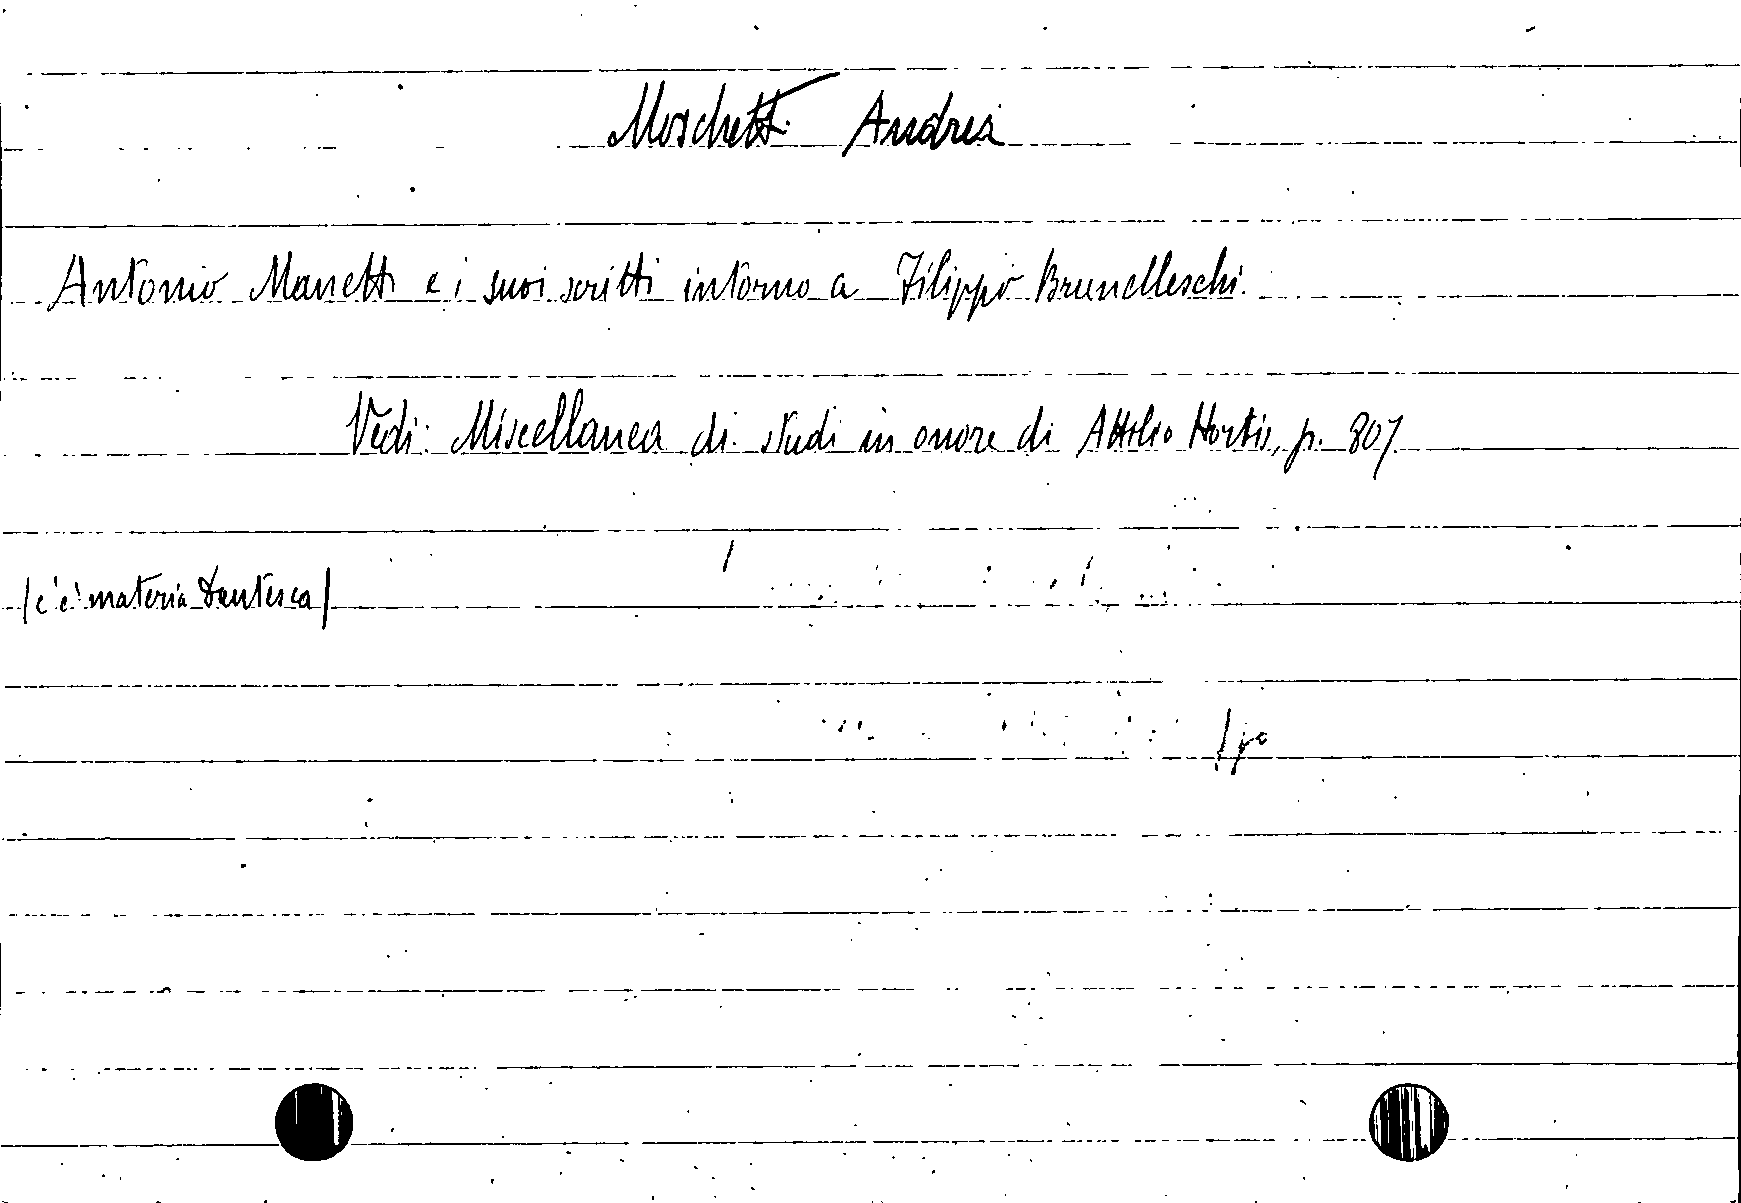 Moschetti Andrea
Antonio Manetti e i suoi scritti intorno a Filippo Brunelleschi.
Vedi: Miscellanea di studi in onore di Attilio Hortis, p. 807
(c'è materia Dantesca)